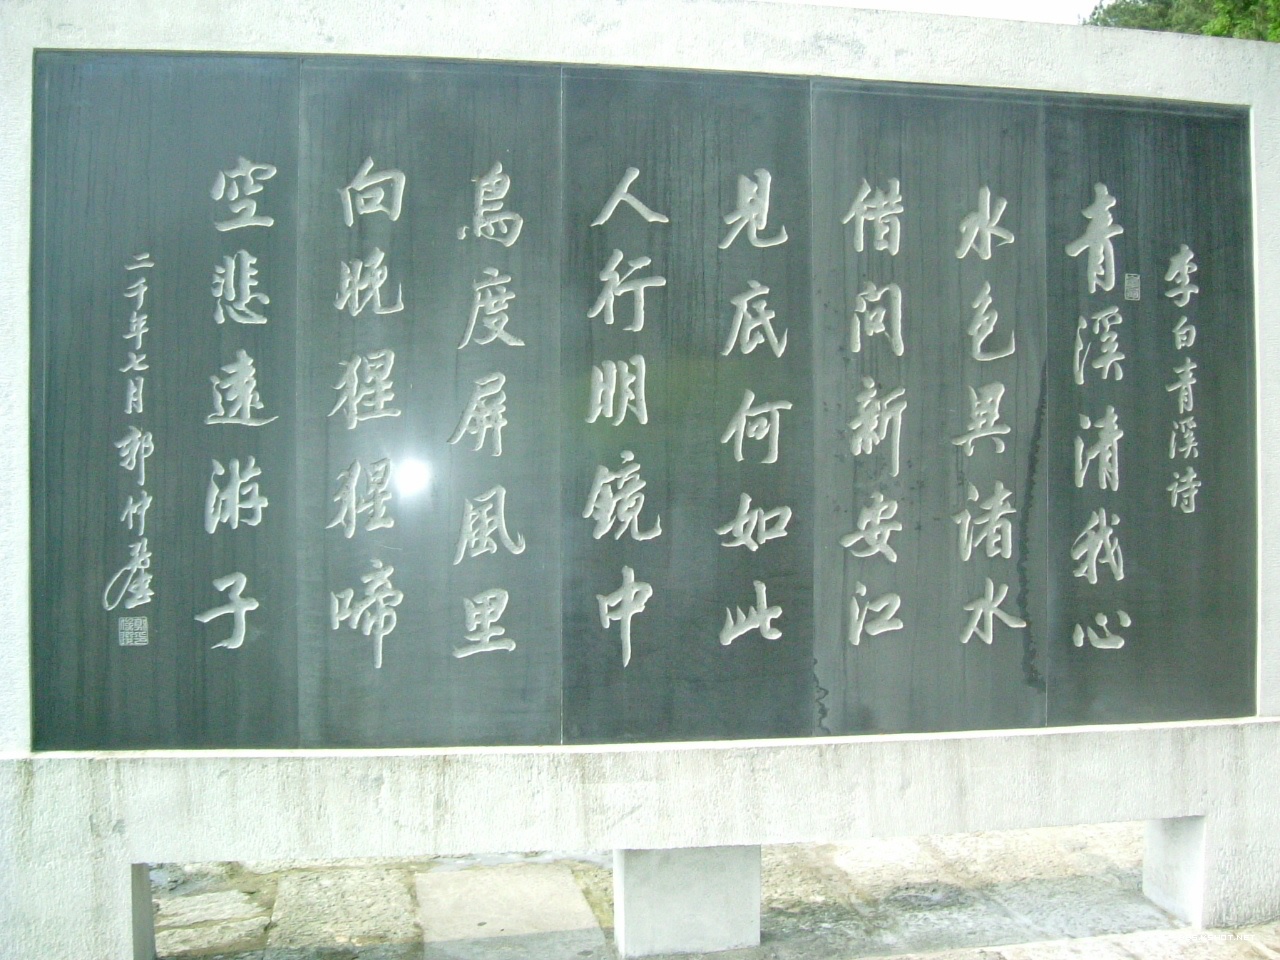 李白青溪诗
青溪清我心
水色具诸水
借问新安江
见底何如此
人行明镜中
鸟度屏风里
向晚猩猩啼
空悲远游子
二千年七月郭仲